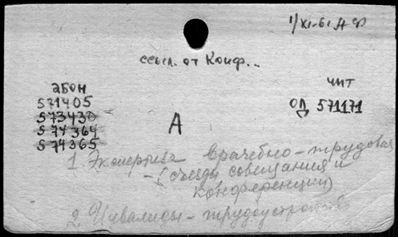 1/XI-61 А Ф
ссыл. от Конф...
абон
571405
573430
574364
574365
А
чит
ОД 571171
1. Экспертиза врачебно-трудовая
- (съезды совещания и
конференции)
2. Инвалиды - трудоустройство